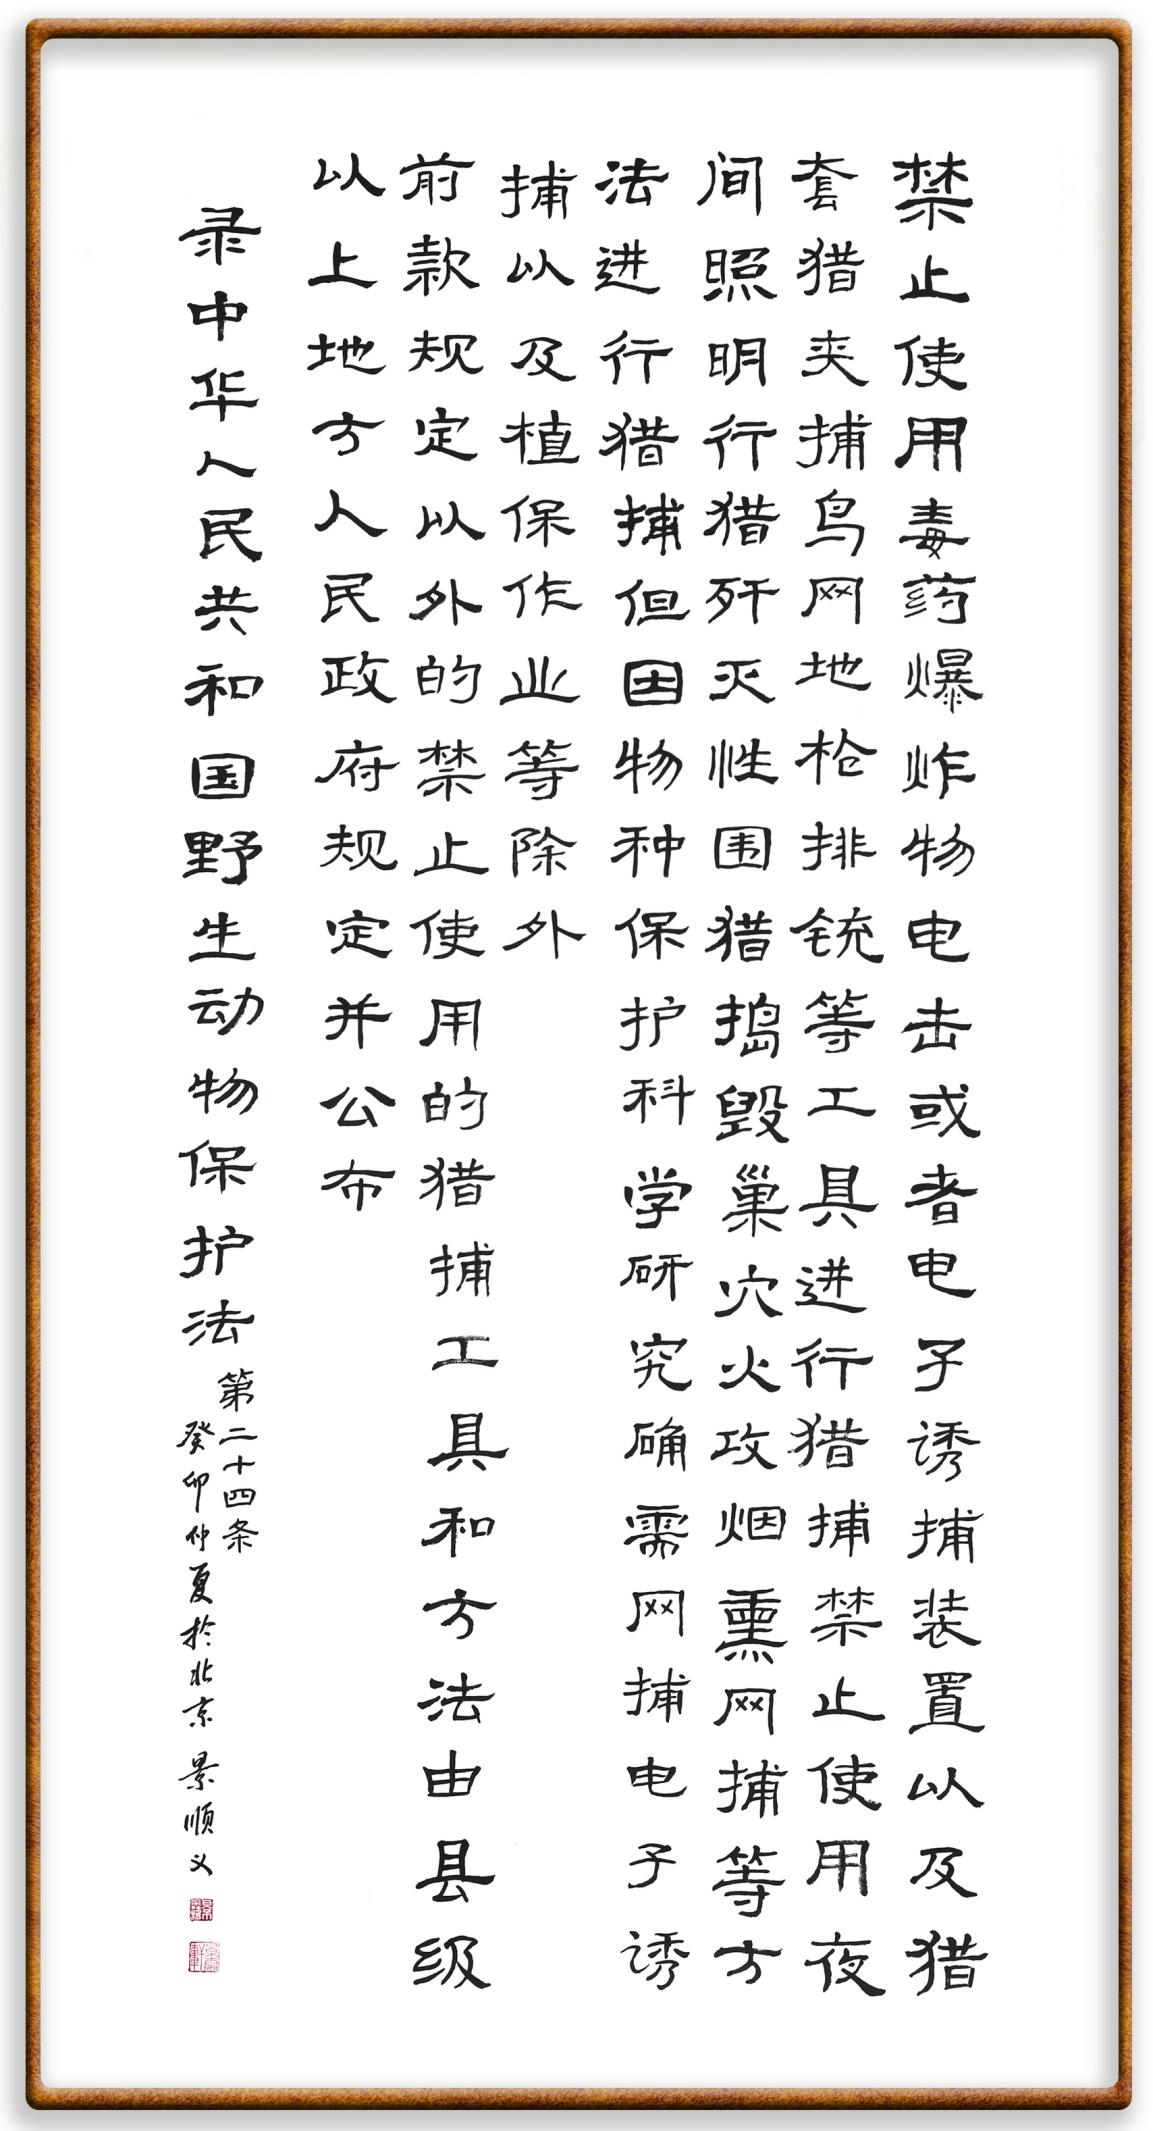 禁止使用毒药爆炸物电击或者电子诱捕装置以及猎
套猎夹捕鸟网地枪排铳等工具进行猎捕禁止使用夜
间照明行猎歼灭性围猎捣毁巢穴火攻烟熏网捕等方
法进行猎捕但因物种保护科学研究确需网捕电子诱
捕以及植保作业等除外
前款规定以外的禁止使用的猎捕工具和方法由县级
以上地方人民政府规定并公布
录中华人民共和国野生动物保护法
第二十四条
癸卯仲夏於北京 景顺义